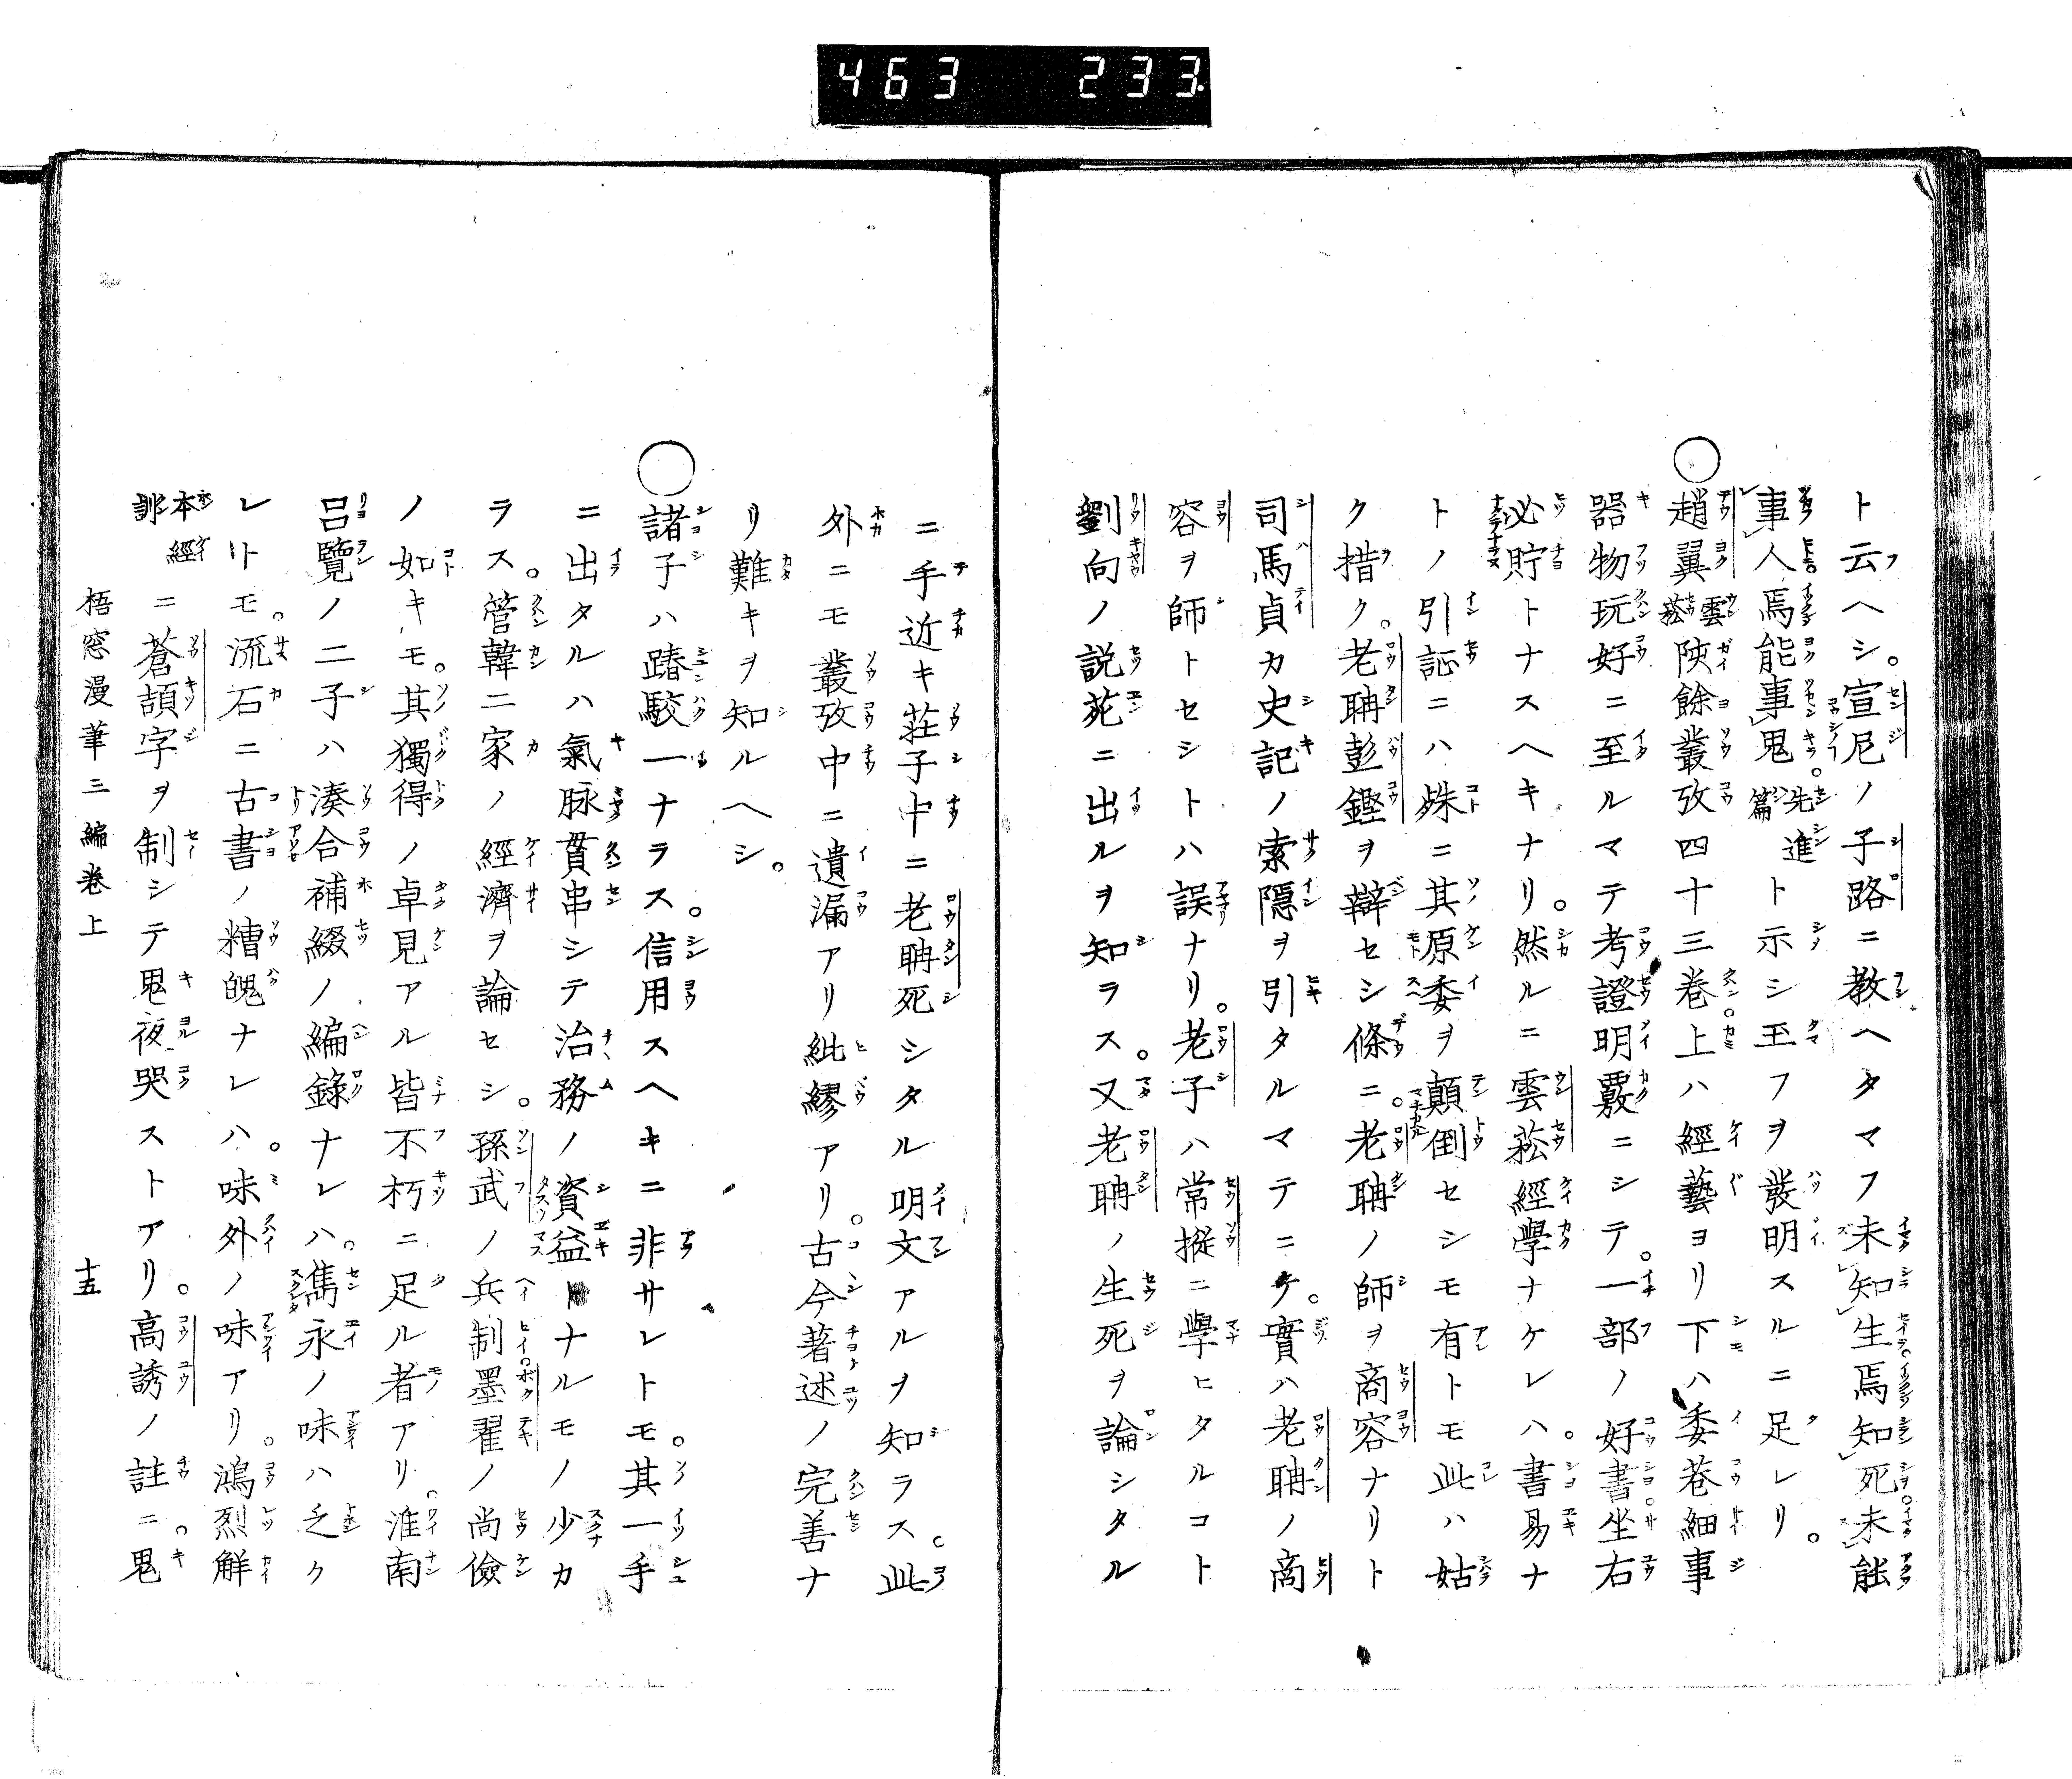 463 233
ト云ヘシ。宣尼ノ子路ニ教ヘタマフ未知生焉知死未能
事人焉能事鬼。先進篇ト示シ玉フヲ發明スルニ足レリ。
○趙翼雲菘陔餘叢攷四十三巻上ハ經藝ヨリ下ハ委巷細事
器物玩好ニ至ルマテ考證明覈ニシテ。一部ノ好書坐右
必貯トナスヘキナリ。然ルニ雲菘經學ナケレハ。書易ナ
トノ引証ニハ殊ニ其原委ヲ顛倒セシモ有トモ此ハ姑
ク措ク。老聃彭鏗ヲ辯セシ條ニ。老聃ノ師ヲ商容ナリト
司馬貞カ史記ノ索隱ヲ引タルマテニテ。實ハ老聃ノ商
容ヲ師トセシトハ誤ナリ。老子ハ常摐ニ學ヒタルコト
劉向ノ説苑ニ出ルヲ知ラス。又老聃ノ生死ヲ論シタル
ニ手近キ莊子中ニ老聃死シタル明文アルヲ知ラス。此
外ニモ叢攷中ニ遺漏アリ紕繆アリ。古今著述ノ完善ナ
リ難キヲ知ルヘシ。
○諸子ハ踳駁一ナラス。信用スヘキニ非サレトモ。其一手
ニ出タルハ氣脉貫串シテ治務ノ資益トナルモノ少カ
ラス。管韓二家ノ經濟ヲ論セシ。孫武ノ兵制墨翟ノ尚儉
ノ如キモ。其獨得ノ卓見アル皆不朽ニ足ル者アリ。淮南
呂覽ノ二子ハ湊合補綴ノ編錄ナレハ。雋永ノ味ハ乏ク
レトモ。流石ニ古書ノ糟魄ナレハ。味外ノ味アリ。鴻烈解
本經訓ニ蒼頡字ヲ制シテ鬼夜哭ストアリ。高誘ノ註ニ。鬼
梧窓漫筆三編巻上 十五